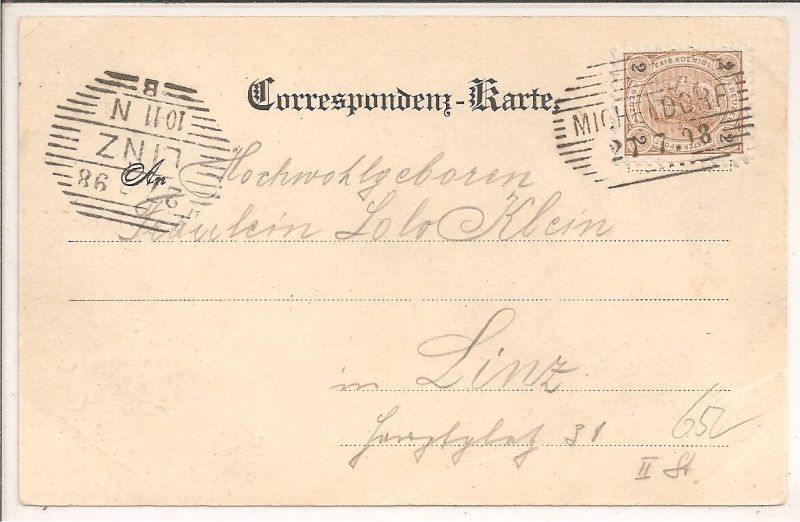 Correspondenz-Karte.
MICHELDORF
27 7 98
2
2
2
KAIS. KOENIGL.
LINZ
10-11 N
B
98
An Hochwohlgeboren
Fräulein Lolo Klein
in Linz
Hauptplatz 31
II St
652